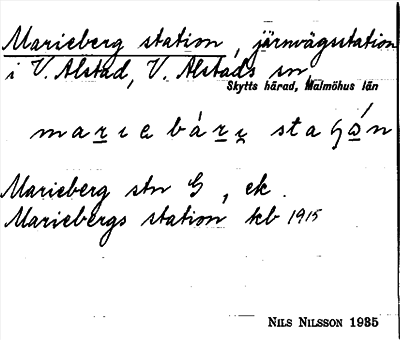 Marieberg station, järnvägsstation
i V. Alstad, V. Alstads sn,
Skytts härad, Malmöhus län
marıebárɥ staʃǻn
Marieberg stn G, ek.
Mariebergs station kb 1915
NILS NILSSON 1935